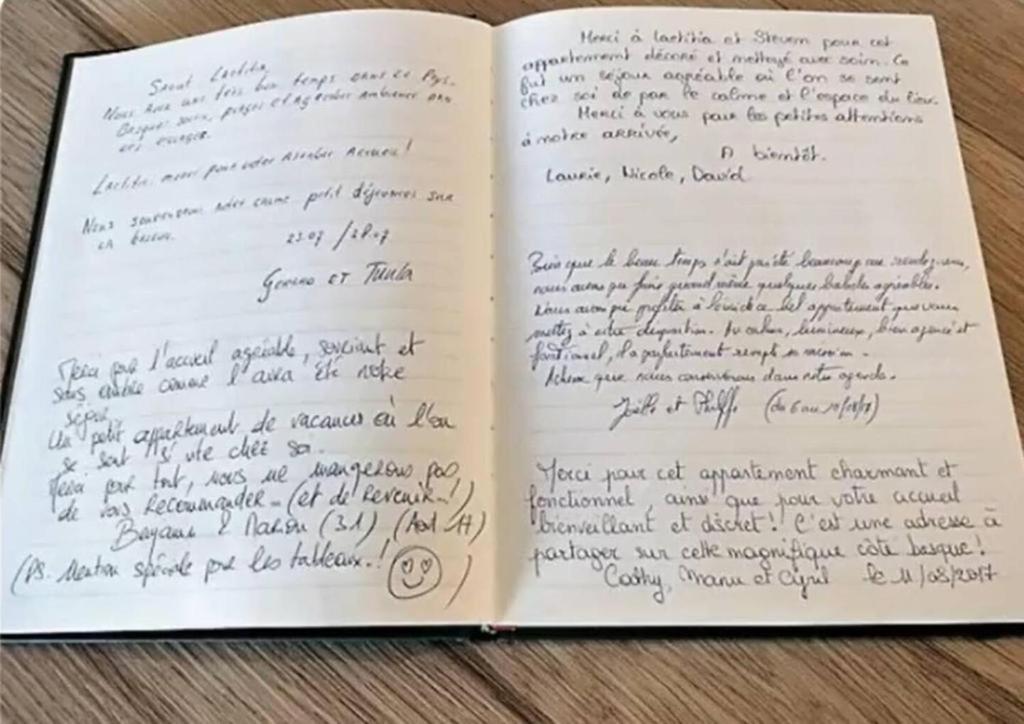 Salut Laetitia,
Nous avons une très bon temps dans le Pays
Basque:
Laetitia, merci pour votre Accueil!
Nous petit déjeuners sur
23.07 / 28.07
ET
Merci pour l'accueil agréable, souriant et
sans comme l'aura été notre
séjour.
Un petit appartement de vacances où l'on
se sent vite chez soi.
Merci pour tout, nous ne mangerons pas
de vous Recommander... (et de Revenir..!)
& Marion (31) (Août 17)
(PS. Mention spéciale pour les tableaux..!)
Merci à Laetitia et Steven pour cet
appartement décoré et nettoyé avec soin. Ce
fut un séjour agréable où l'on se sent
chez soi de par le calme et l'espace du lieu.
Merci à vous pour les petites attentions
à notre arrivée,
A bientôt.
Laurie, Nicole, David
Bien que le beau temps n'ait pas été beaucoup au rendez-vous,
nous avons pu faire quand même quelques balades agréables.
Nous avons pu profiter à loisir de ce bel appartement que vous
mettez à votre disposition. Au calme, lumineux, bien agencé et
fonctionnel, il a parfaitement rempli sa mission.
Adresse que nous conserverons dans notre agenda.
Joëlle et Philippe (du 6 au
Merci pour cet appartement charmant et
fonctionnel, ainsi que pour votre accueil
bienveillant et discret! C'est une adresse à
partager sur cette magnifique côte basque!
Cathy, Manu et Cyril le 11/08/2017